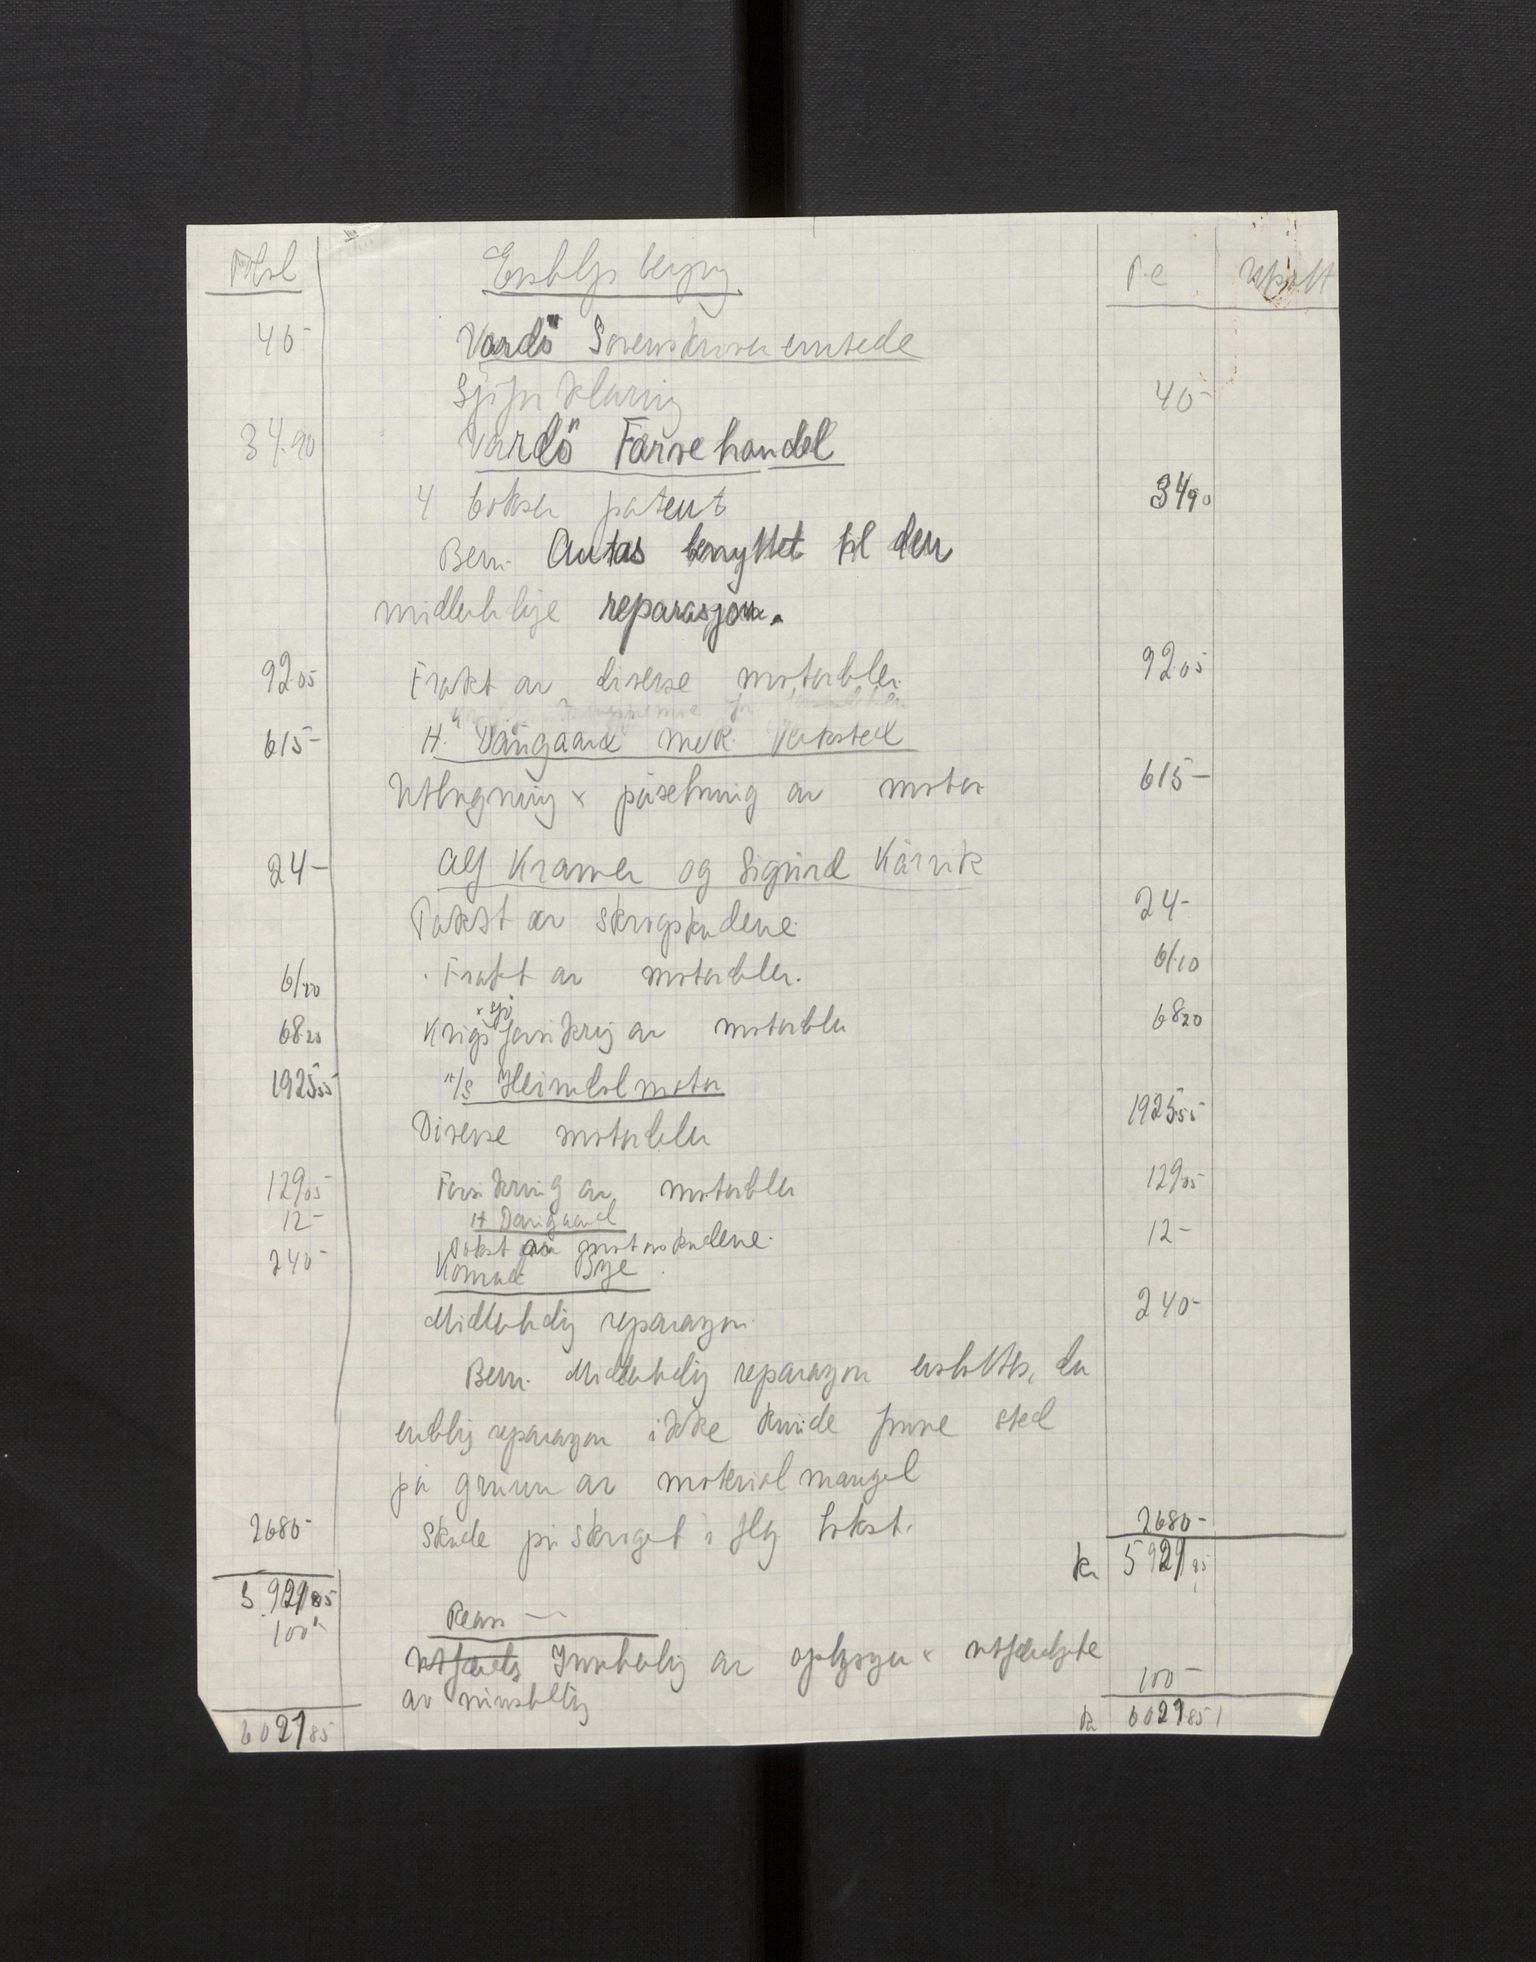 40-
Vardö Sorenskriverembede
Sjøforklaring 40-
34.90 Vardö Farvehandel
4 bokser patent 34 90
Bem. Antas benyttet til den
midlertidige reparasjon.
92 05 Frakt av diverse motordeler 92 05
615- H. Dangaard mek. Verksted
Uttagning x påsetning av motor 615-
24- Alf Kramer og Sigurd Kårvik
Takst av skrogskadene 24-
61 20 Frakt av motordeler. 61 20
x sjø
68 20 Krigs forsikring av motordeler 68 20
1925 55 A/S Heimdal motor
Diverse motordeler 1925 55
129 05 Forsikring av motordeler 129 05
12- H Dangaard
Takst motorskadene. 12-
240- Konrad Bye
Midlertidig reparasjon 240-
Bem. Midlertidig reparasjon erstattes, da
endelig reparasjon ikke kunde finne sted
på grunn av materialmangel
2680- Skade på skroget i flg takst. 2680-
kr 5921 85
5921 85
100-
Innhenting av oplysn x utferdigelse
av 100-
6021 85 kr 6021 85